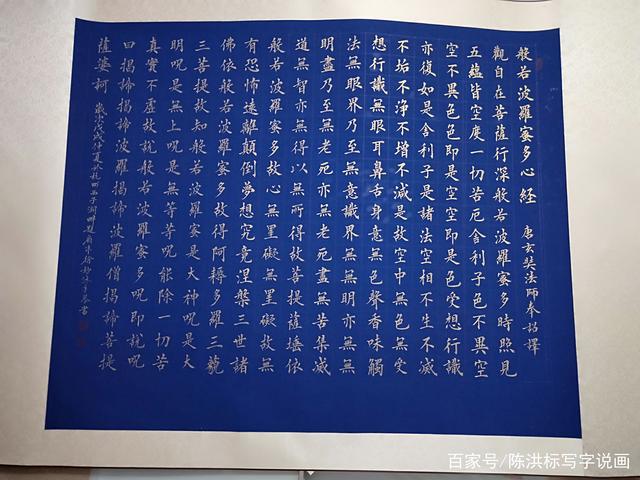 般若波羅蜜多心經
唐玄奘法師奉詔譯
觀自在菩薩行深般若波羅蜜多時照見
五蘊皆空度一切苦厄舍利子色不異空
空不異色色即是空空即是色受想行識
亦復如是舍利子是諸法空相不生不滅
不垢不淨不增不減是故空中無色無受
想行識無眼耳鼻舌身意無色聲香味觸
法無眼界乃至無意識界無無明亦無無
明盡乃至無老死亦無老死盡無苦集滅
道無智亦無得以無所得故菩提薩埵依
般若波羅蜜多故心無罣礙無罣礙故無
有恐怖遠離顛倒夢想究竟涅槃三世諸
佛依般若波羅蜜多故得阿耨多羅三藐
三菩提故知般若波羅蜜是大神呪是大
明呪是無上呪是無等等呪能除一切苦
真實不虛故說般若波羅蜜多呪即說呪
曰揭諦揭諦波羅揭諦波羅僧揭諦菩提
薩婆柯
百家号/陈洪标写字说画